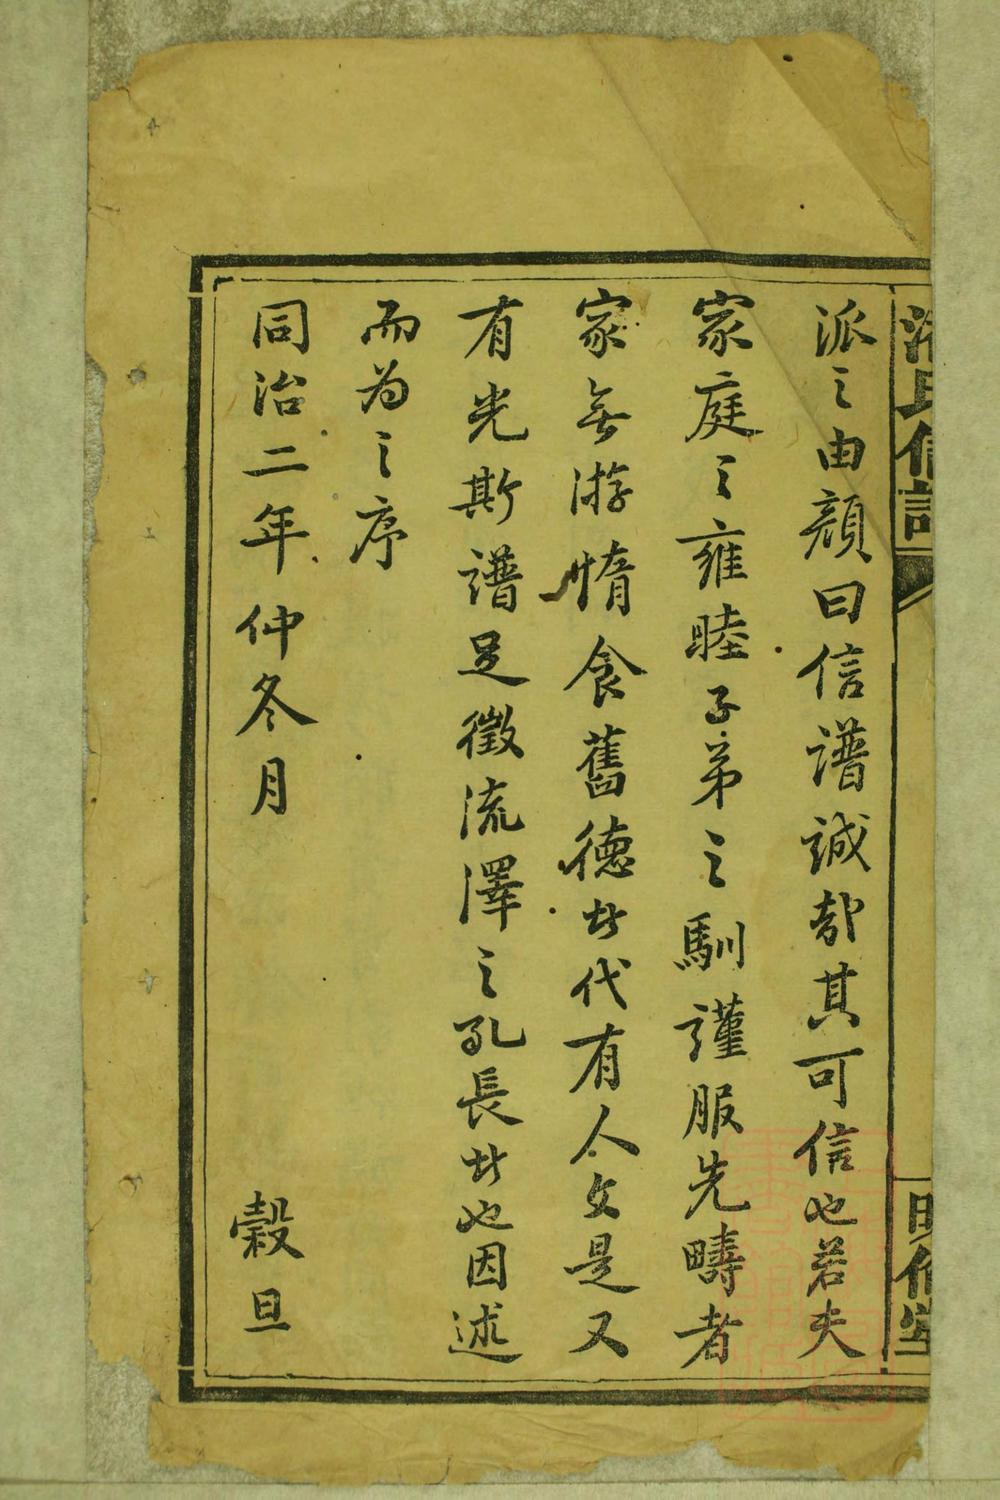 氏信譜
派之由顏曰信譜誠哉其可信也若夫
家庭之雍睦子弟之馴謹服先疇者
家無游惰食舊德者代有人文是又
有光斯譜足徵流澤之孔長者也因述
而为之序
同治二年仲冬月 穀旦